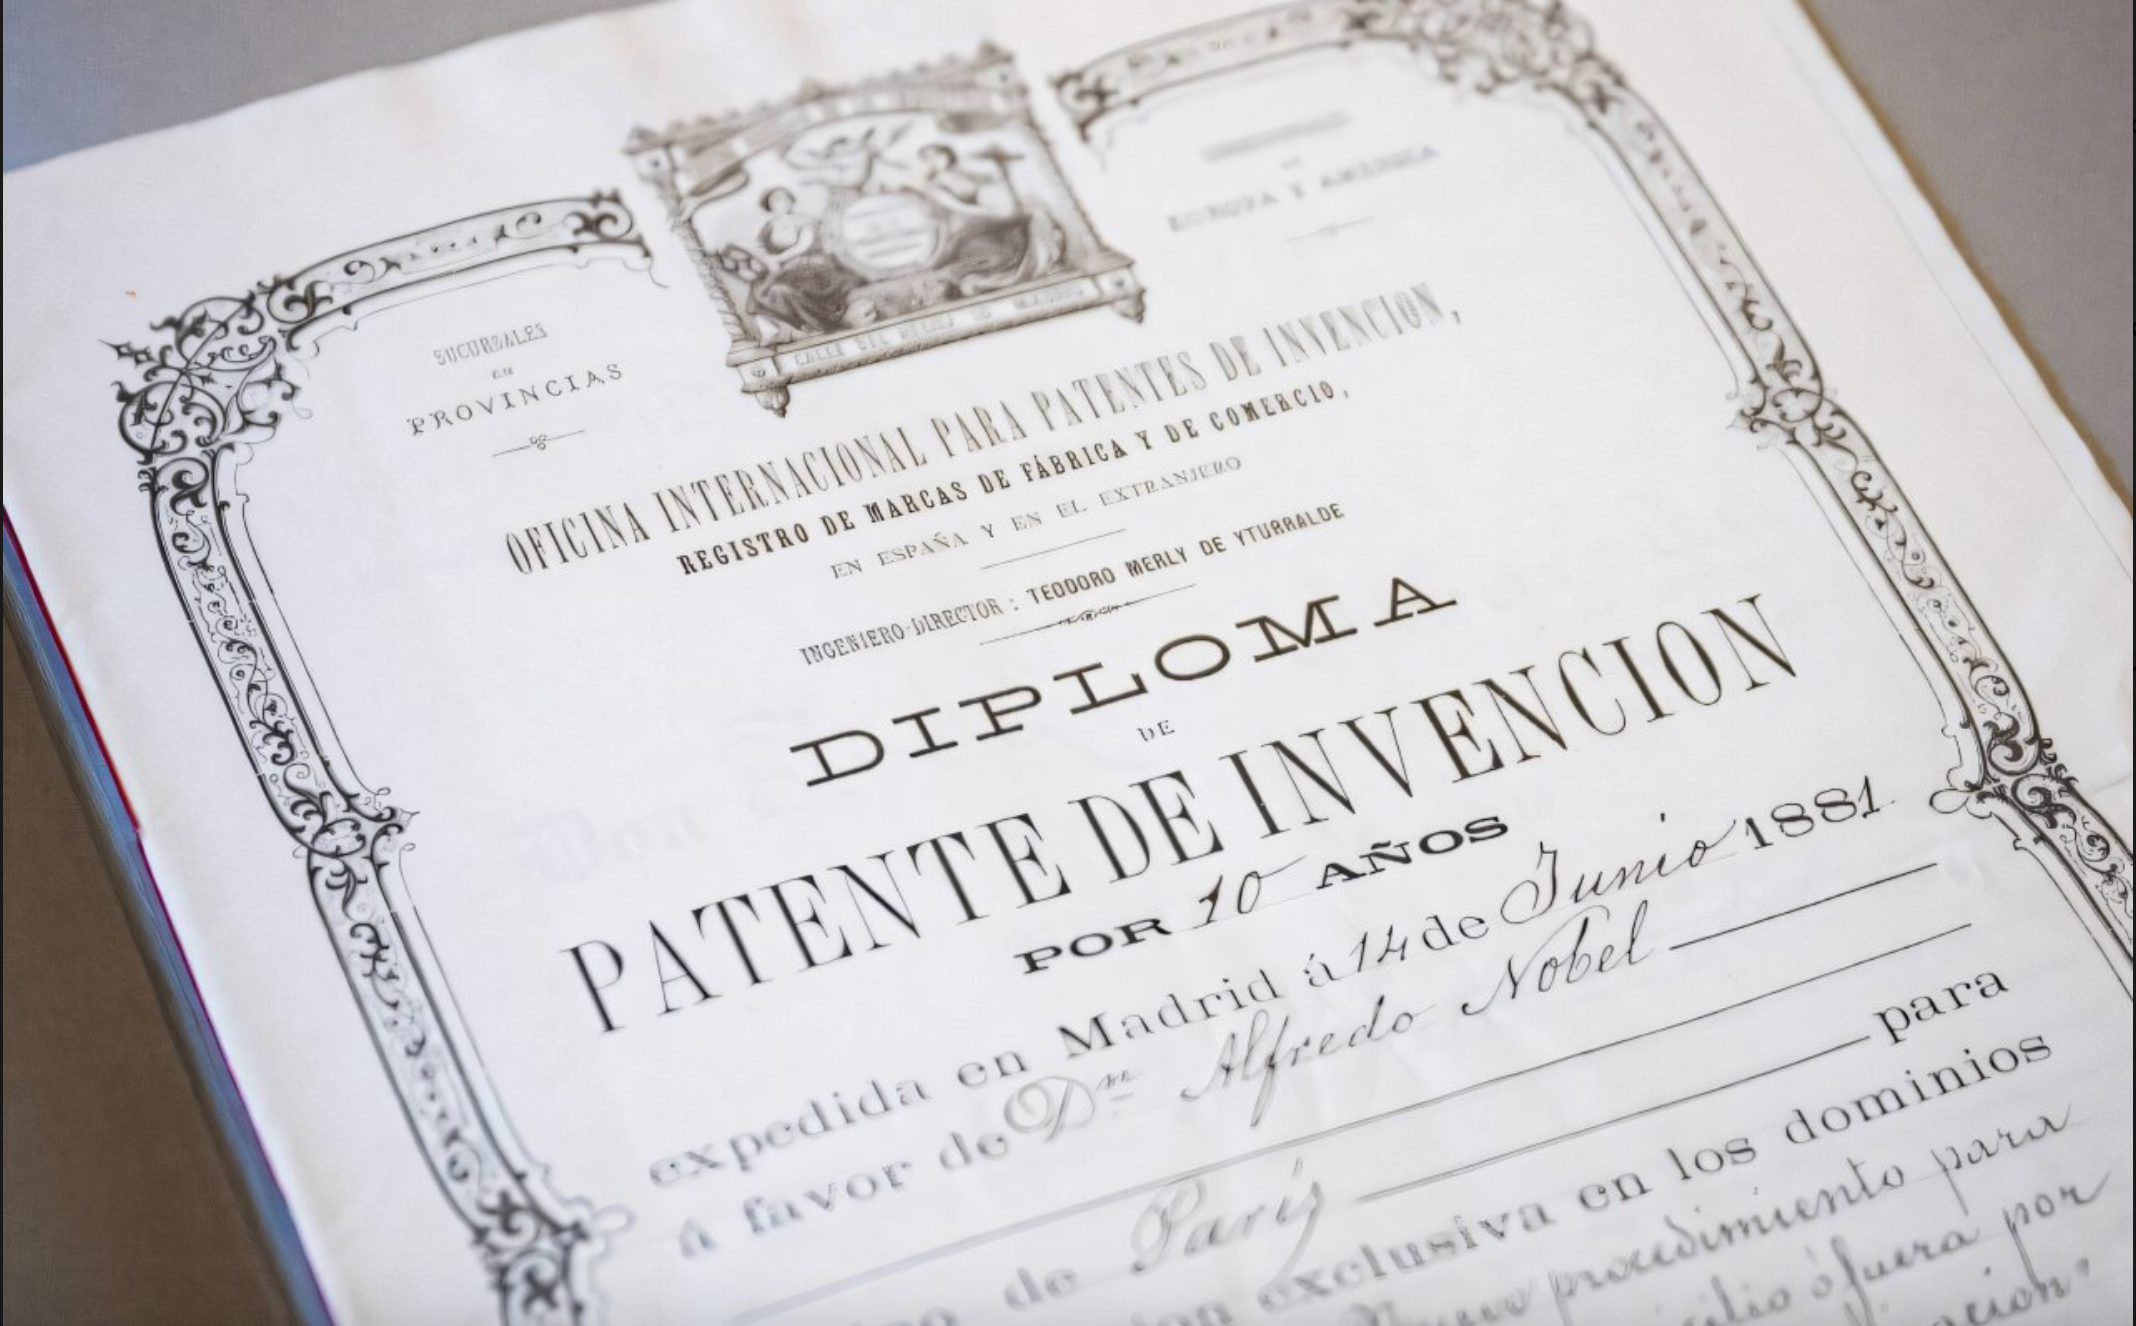 SUCURSALES
EN
PROVINCIAS
EUROPA Y AMÉRICA
CALLE DEL
OFICINA INTERNACIONAL PARA PATENTES DE INVENCION,
REGISTRO DE MARCAS DE FÁBRICA Y DE COMERCIO,
EN ESPAÑA Y EN EL EXTRANJERO
INGENIERO-DIRECTOR : TEODORO MERLY DE YTURRALDE
DIPLOMA
DE
PATENTE DE INVENCION
POR 10 AÑOS
expedida en Madrid á 14 de Junio 1881
á favor de Dn Alfredo Nobel
para
de París
exclusiva en los dominios
procedimiento para
ó fuera por